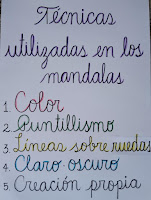 Técnicas
utilizadas en los
mandalas
1. Color
2. Puntillismo
3. Líneas sobre ruedas
4. Claro-oscuro
5. Creación propia